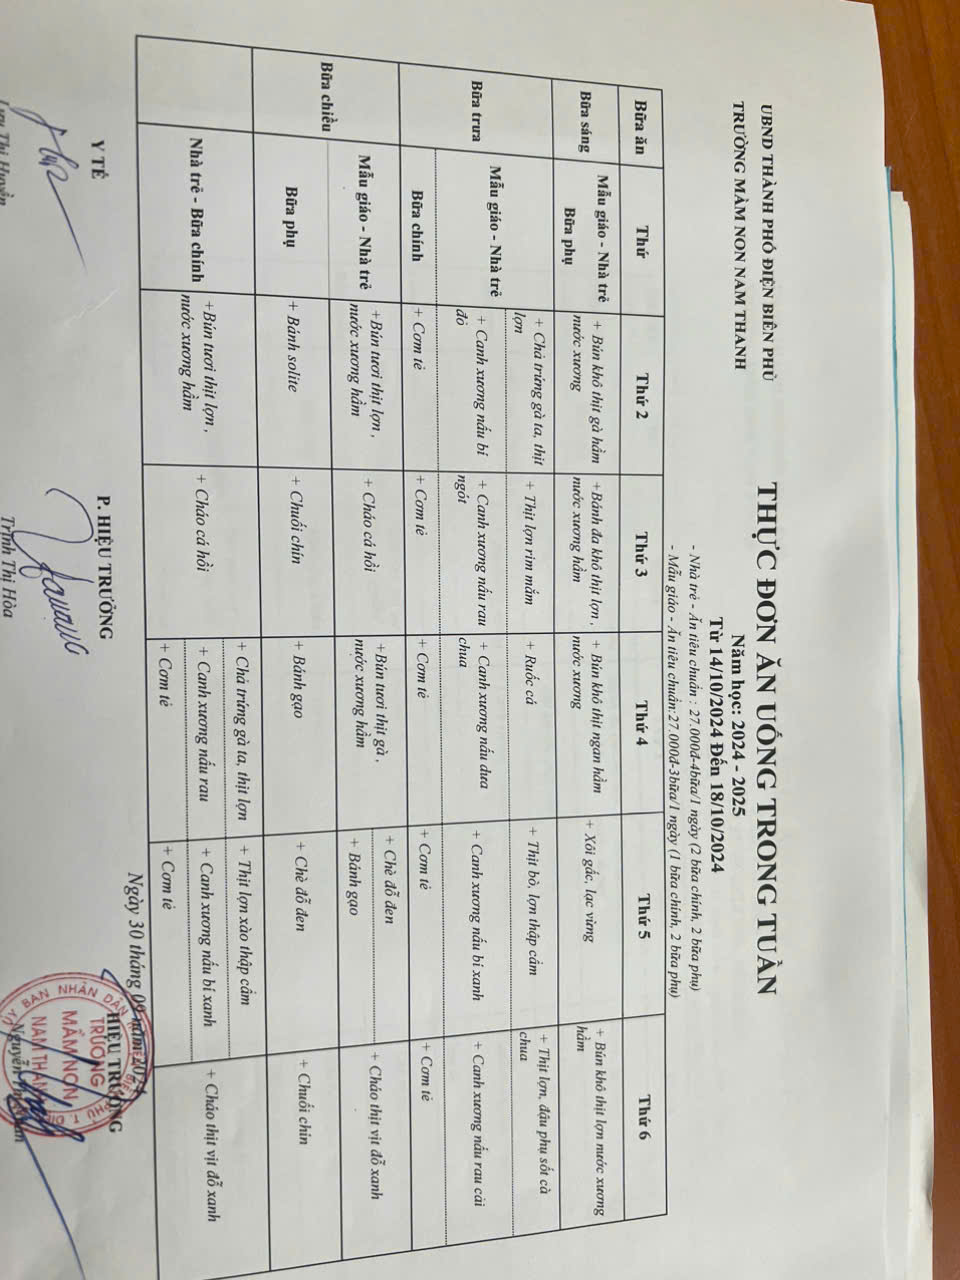 UBND THÀNH PHỐ ĐIỆN BIÊN PHỦ
TRƯỜNG MẦM NON NAM THANH
THỰC ĐƠN ĂN UỐNG TRONG TUẦN
Năm học: 2024 - 2025
Từ 14/10/2024 Đến 18/10/2024
- Nhà trẻ - Ăn tiêu chuẩn : 27.000đ-4bữa/1 ngày (2 bữa chính, 2 bữa phụ)
- Mẫu giáo - Ăn tiêu chuẩn:27.000đ-3bữa/1 ngày (1 bữa chính, 2 bữa phụ)
Bữa ăn Thứ Thứ 2 Thứ 3 Thứ 4 Thứ 5 Thứ 6
Bữa sáng
Mẫu giáo - Nhà trẻ
Bữa phụ
+ Bún khô thịt gà hầm
nước xương
+Bánh đa khô thịt lợn ,
nước xương hầm
+ Bún khô thịt ngan hầm
nước xương
+ Xôi gấc, lạc vừng
+ Bún khô thịt lợn nước xương
hầm
Bữa trưa
Mẫu giáo - Nhà trẻ
Bữa chính
+ Chả trứng gà ta, thịt
lợn
+ Thịt lợn rim mắm
+ Ruốc cá
+ Thịt bò, lợn thập cẩm
+ Thịt lợn, đậu phụ sốt cà
chua
+ Canh xương nấu bí
đỏ
+ Canh xương nấu rau
ngót
+ Canh xương nấu dưa
chua
+ Canh xương nấu bí xanh
+ Canh xương nấu rau cải
+ Cơm tẻ
+ Cơm tẻ
+ Cơm tẻ
+ Cơm tẻ
+ Cơm tẻ
Bữa chiều
Mẫu giáo - Nhà trẻ
Bữa phụ
+Bún tươi thịt lợn ,
nước xương hầm
+ Cháo cá hồi
+Bún tươi thịt gà ,
nước xương hầm
+ Chè đỗ đen
+ Bánh gạo
+ Cháo thịt vịt đỗ xanh
+ Bánh solite
+ Chuối chín
+ Bánh gạo
+ Chè đỗ đen
+ Chuối chín
Nhà trẻ - Bữa chính
+Bún tươi thịt lợn ,
nước xương hầm
+ Cháo cá hồi
+ Chả trứng gà ta, thịt lợn
+ Canh xương nấu rau
+ Cơm tẻ
+ Thịt lợn xào thập cẩm
+ Canh xương nấu bí xanh
+ Cơm tẻ
+ Cháo thịt vịt đỗ xanh
Ngày 30 tháng 09 năm 2024
Y TẾ
P. HIỆU TRƯỞNG
HIỆU TRƯỞNG
TRƯỜNG
MẦM NON
NAM THANH
Lưu Thị Huyền
Trịnh Thị Hòa
Nguyễn